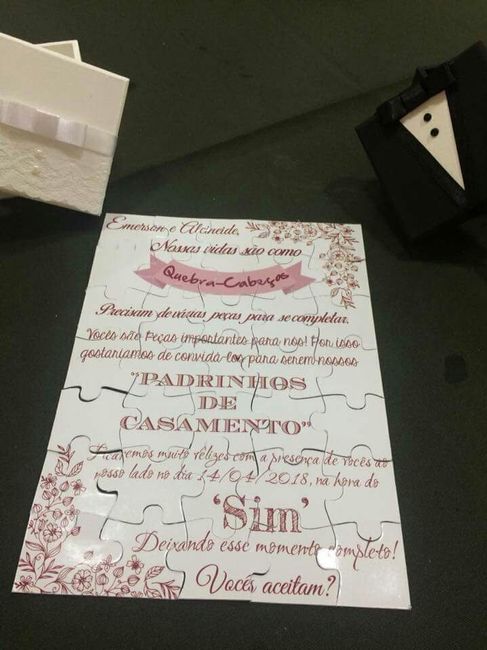 Emerson e Alcineide,
Nossas vidas são como
Quebra-Cabeças
Precisam de várias peças para se completar.
Vocês são Peças importantes para nós! Por isso
gostaríamos de convidá-los para serem nossos
"PADRINHOS
DE
CASAMENTO"
Ficaremos muito felizes com a presença de vocês ao
nosso lado no dia 14/04/2018, na hora do
'Sim'
Deixando esse momento completo!
Vocês aceitam?